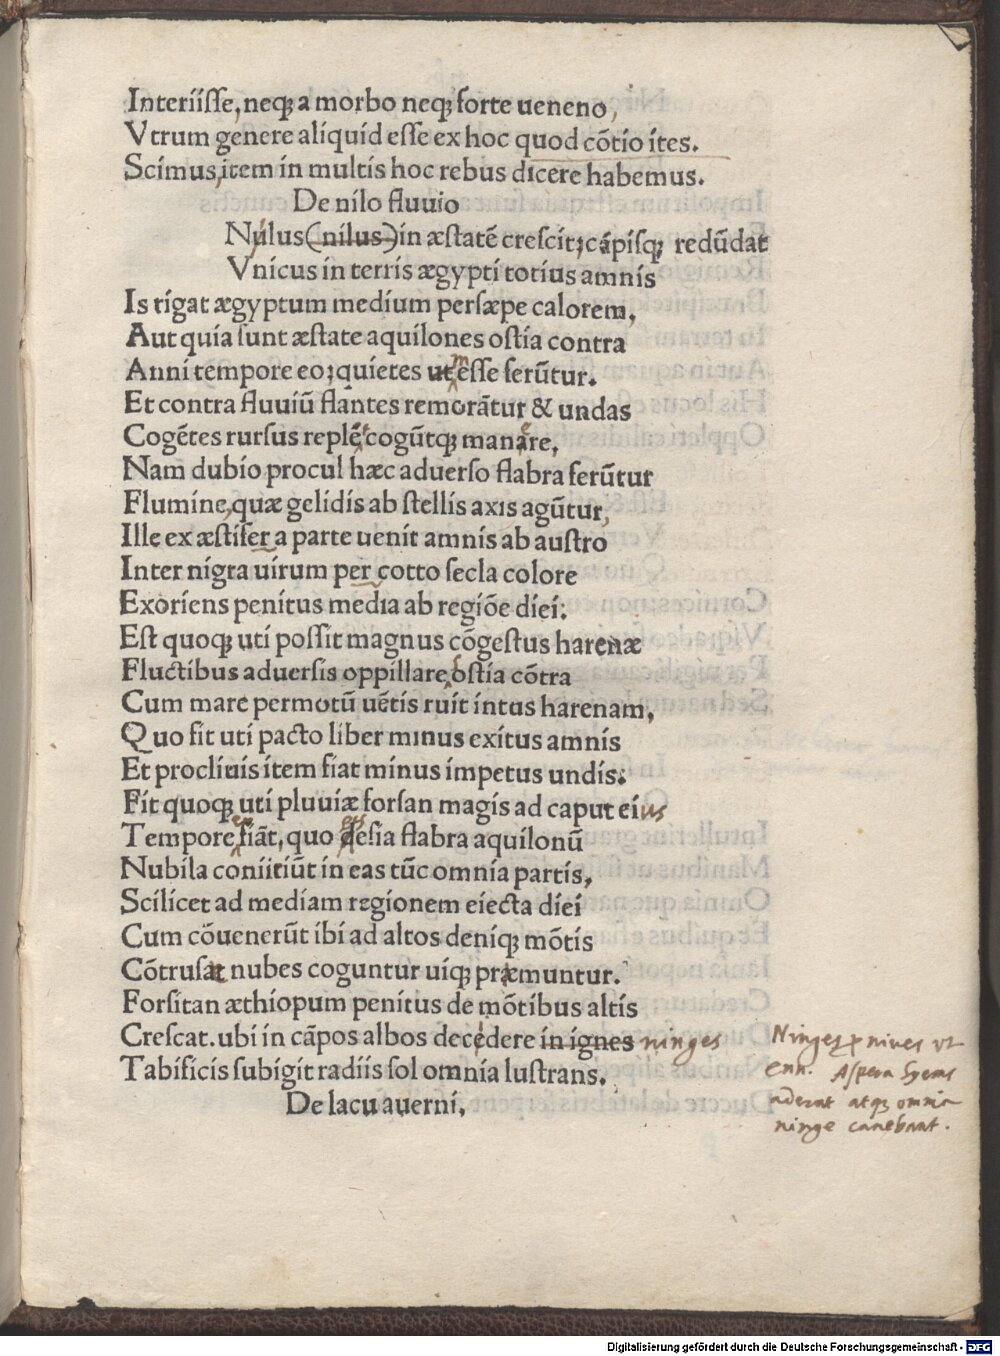 Interiisse, neqꝫ a morbo neqꝫ forte ueneno,
Vtrum genere aliquid esse ex hoc quod cōtio ites.
Scimus, item in multis hoc rebus dicere habemus.
De nilo fluuio
Nilus (nilus) in æstatē crescit; cāpisqꝫ redūdat
Vnicus in terris ægypti totius amnis
Is rigat ægyptum medium persæpe calorem,
Aut quia sunt æstate aquilones ostia contra
Anni tempore eo; quietes ut m esse ferūtur.
Et contra fluuiū flantes remorātur & undas
Cogētes rursus replēt cogūtqꝫ manare,
Nam dubio procul hæc aduerso flabra ferūtur
Flumine, quæ gelidis ab stellis axis agūtur,
Ille ex æstifer a parte uenit amnis ab austro
Inter nigra uirum per cotto secla colore
Exoriens penitus media ab regiōe diei:
Est quoqꝫ uti possit magnus cōgestus harenæ
Fluctibus aduersis oppillare, ostia cōtra
Cum mare permotū uētis ruit intus harenam,
Quo fit uti pacto liber minus exitus amnis
Et procliuis item fiat minus impetus undis:
Fit quoqꝫ uti pluuiæ forsan magis ad caput eius
Tempore fiāt, quo etesia flabra aquilonū
Nubila coniitiūt in eas tūc omnia partis,
Scilicet ad mediam regionem eiecta diei
Cum cōuenerūt ibi ad altos deniqꝫ mōtis
Cōtrusæ nubes coguntur uiqꝫ præmuntur.
Forsitan æthiopum penitus de mōtibus altis
Crescat. ubi in cāpos albos decedere in ignes ninges
Tabificis subigit radiis sol omnia lustrans.
De lacu auerni,
Ninges p niues vt
enn. Aspera hyems
aderat atqꝫ omnia
ninge canebant.
Digitalisierung gefördert durch die Deutsche Forschungsgemeinschaft - DFG